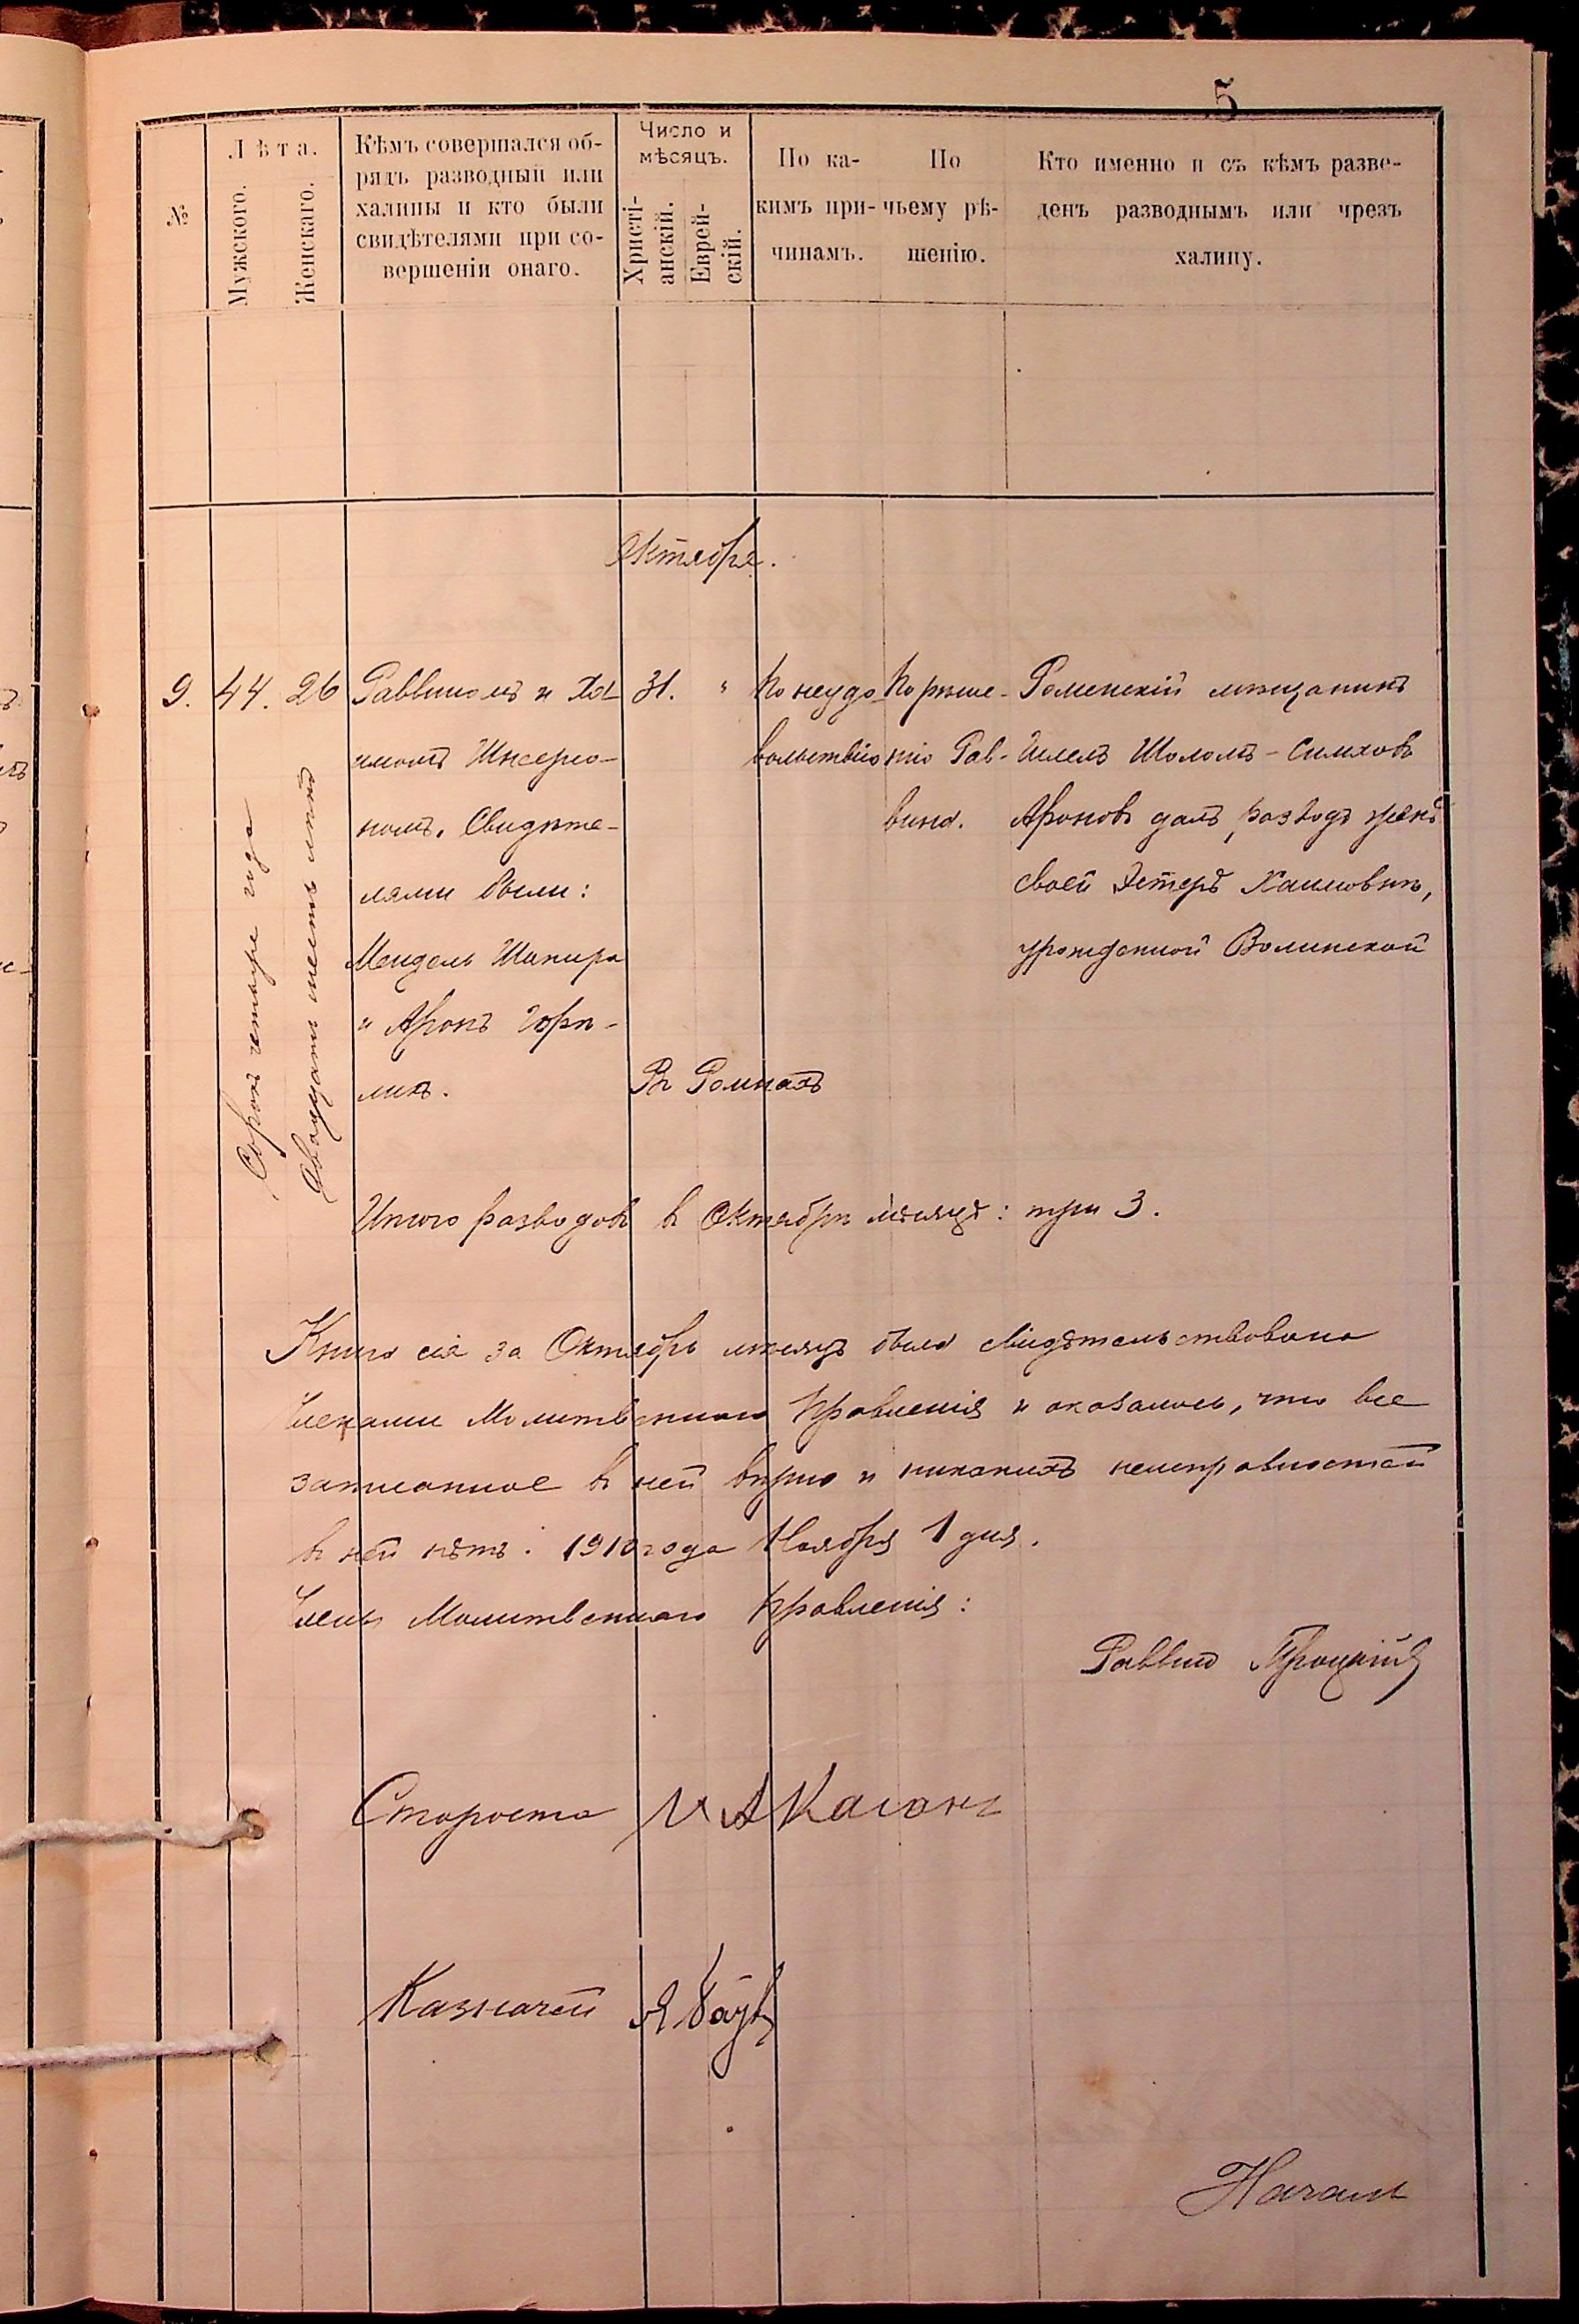 5
№
Лѣта.
Мужскаго.
Женскаго.
Кѣмъ совершался об-
рядъ разводный или
халицы и кто были
свидѣтелями при со-
вершеніи онаго.
Число и
мѣсяцъ.
Христі-
анскій.
Еврей-
скій.
По ка-
кимъ при-
чинамъ.
По
чьему рѣ-
шенію.
Кто именно и съ кѣмъ разве-
денъ разводнымъ или чрезъ
халицу.
Октября.
9. 44. 26
Сорокъ четыре года
Двадцать шесть лѣтъ
Раввиномъ и Ха-
имомъ
номъ. Свидѣте-
лями были:
Мендель Шапиро
и Аронъ Горе-
ликъ.
31. "
Въ Ромнахъ
По неудо-
вольствію
По рѣше-
нію Рав-
вина.
Роменскій мѣщанинъ
Шоломъ-Симховъ
Ароновъ далъ разводъ женѣ
своей Эстерѣ Хаимовнѣ,
урожденной Волинской
Итого разводовъ въ Октябрѣ мѣсяцѣ: три 3.
Книга сія за Октябрь мѣсяцъ была свидѣтельствована
Членами Молитвеннаго Правленія и оказалось, что все
записанное въ ней вѣрно и никакихъ неисправностей
въ ней нѣтъ. 1910 года Ноября 1 дня.
Члены Молитвеннаго Правленія:
Раввинъ Троцкій
Староста И А Каганъ
Казначей Я